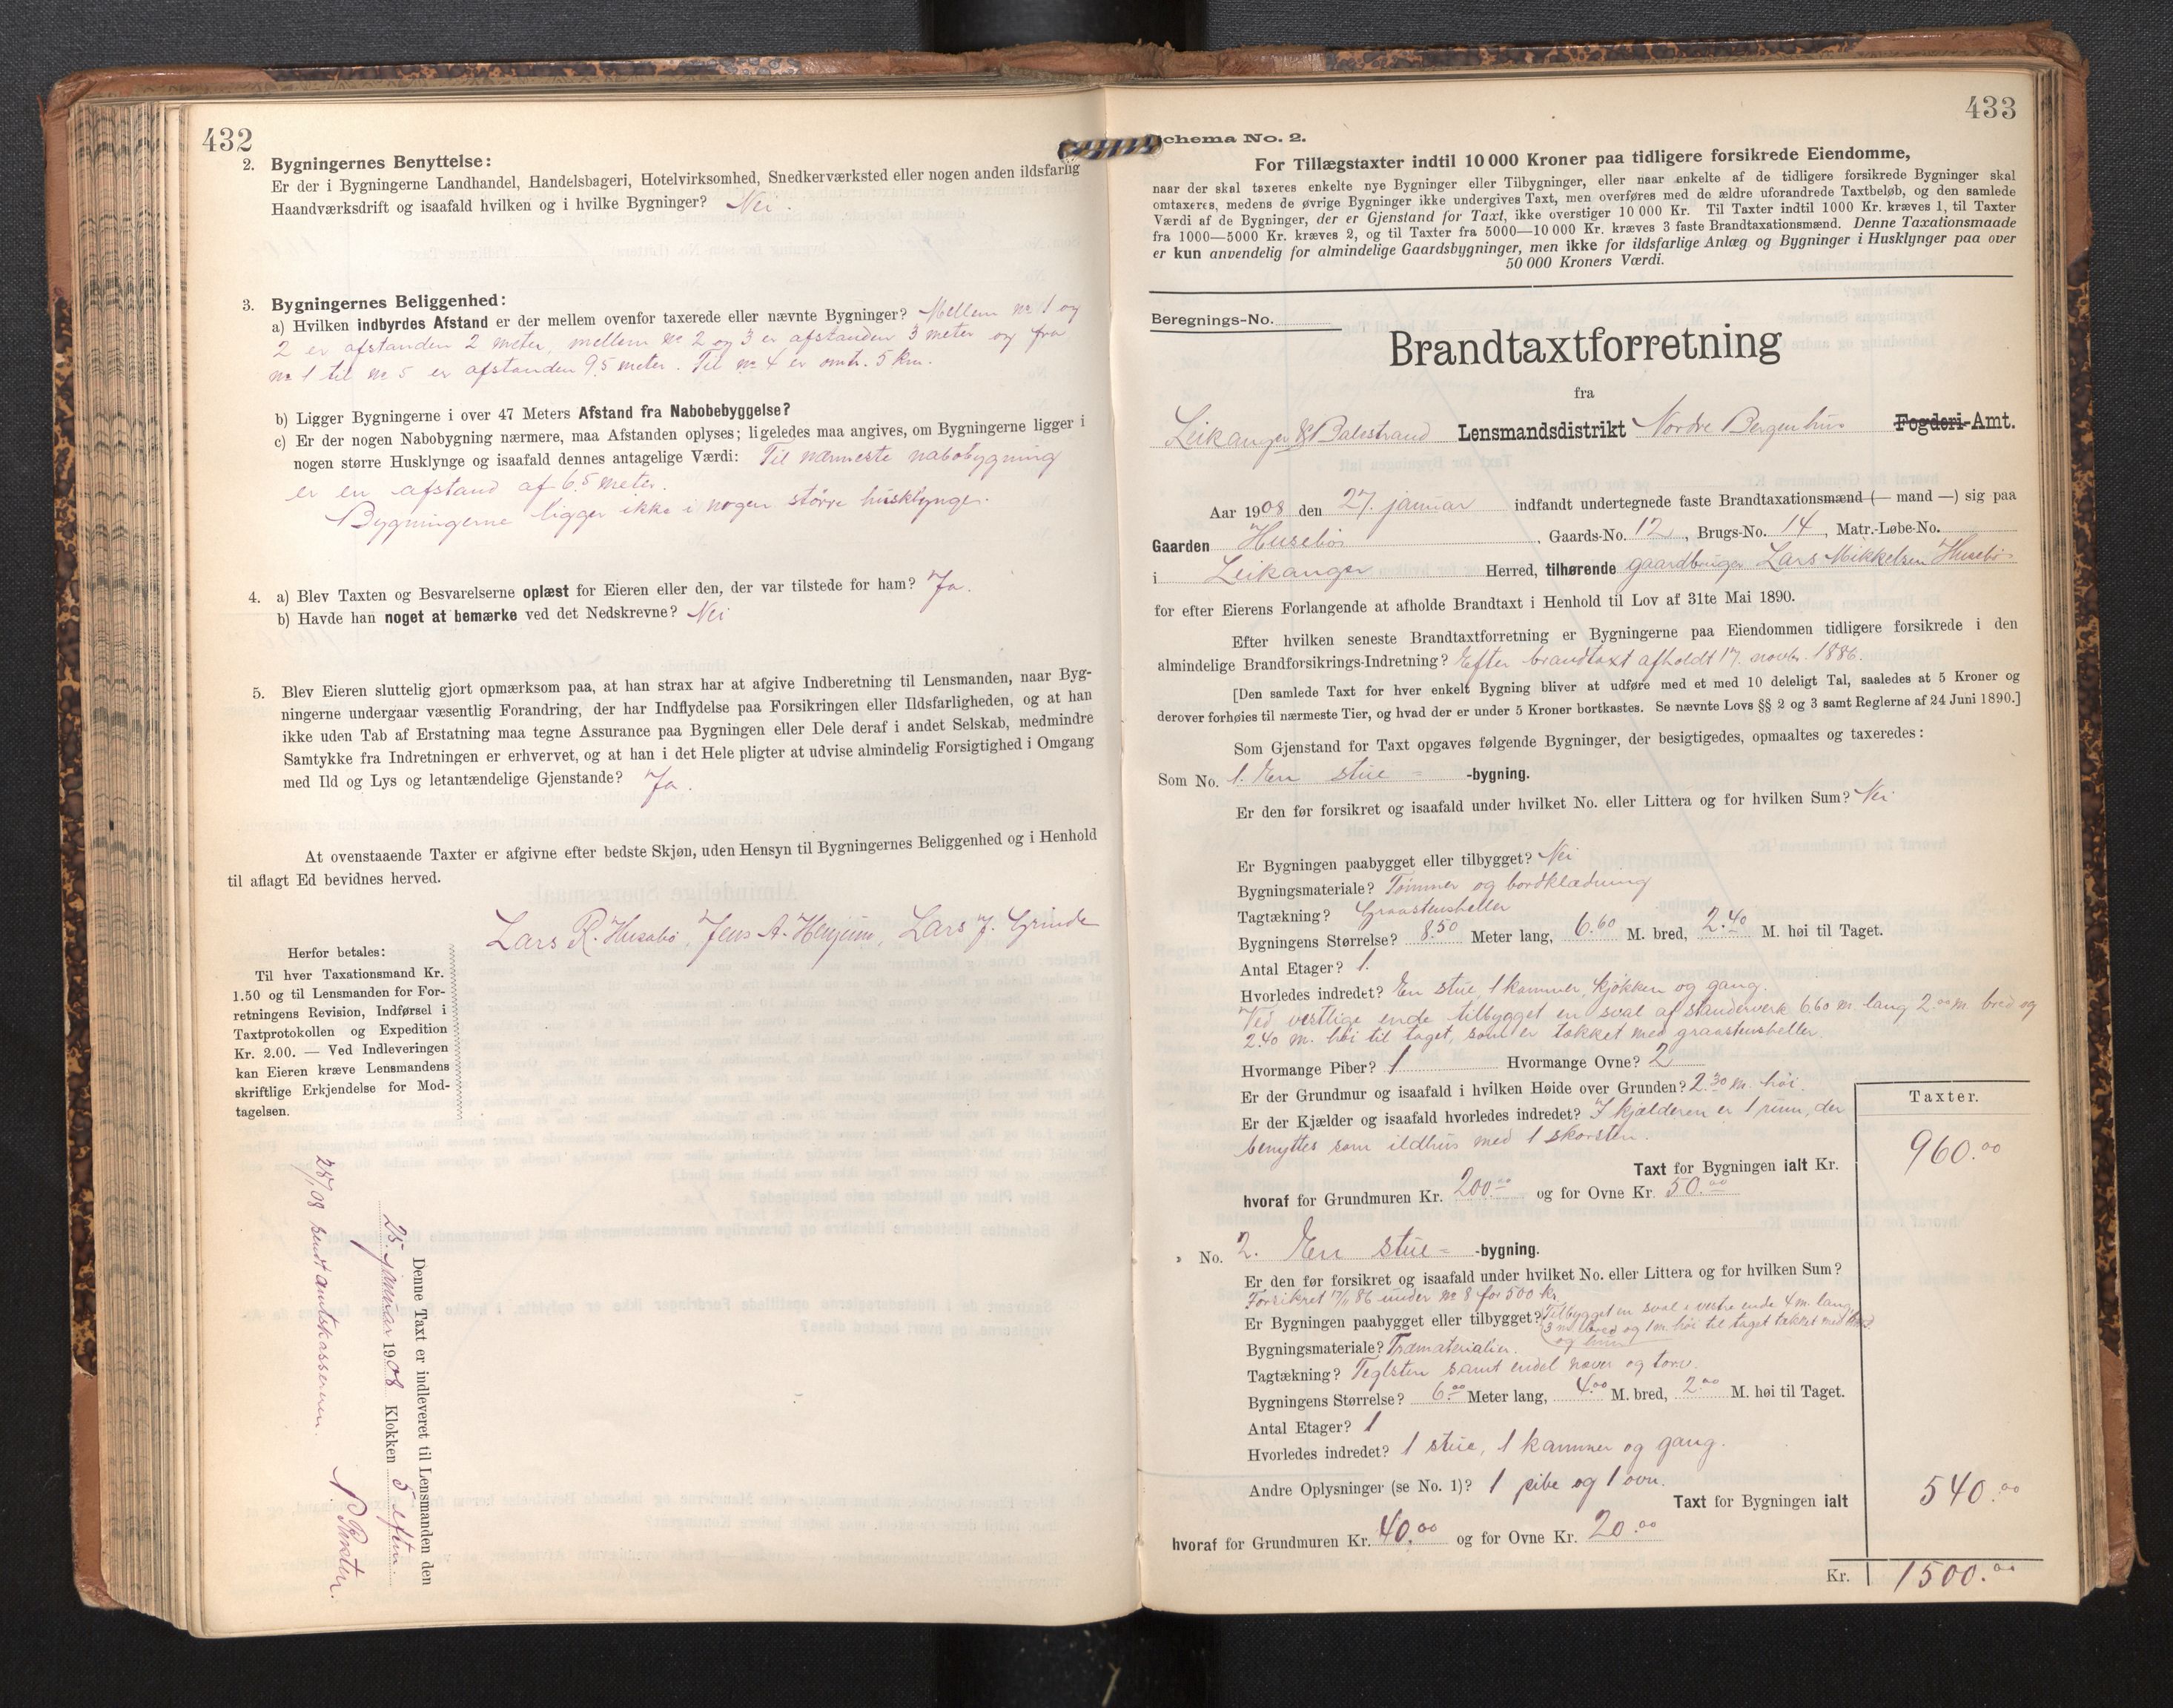 432
2. Bygningernes Benyttelse:
Er der i Bygningerne Landhandel, Handelsbageri, Hotelvirksomhed, Snedkerværksted eller nogen anden ildsfarlig
Haandværksdrift og isaafald hvilken og i hvilke Bygninger? Nei.
3. Bygningernes Beliggenhed:
a) Hvilken indbyrdes Afstand er der mellem ovenfor taxerede eller nævnte Bygninger? Mellem no 1 og
2 er afstanden 2 meter, mellem no 2 og 3 er afstanden 3 meter og fra
no 1 til no 5 er afstanden 9,5 meter. Til no 4 er omtr. 5 km.
b) Ligger Bygningerne i over 47 Meters Afstand fra Nabobebyggelse?
c) Er der nogen Nabobygning nærmere, maa Afstanden oplyses; ligeledes maa angives, om Bygningerne ligger i
nogen større Husklynge og isaafald dennes antagelige Værdi: Til nærmeste nabobygning
er en afstand af 6,5 meter.
Bygningerne ligger ikke i nogen större husklynge.
4. a) Blev Taxten og Besvarelserne oplæst for Eieren eller den, der var tilstede for ham? Ja.
b) Havde han noget at bemærke ved det Nedskrevne? Nei
5. Blev Eieren sluttelig gjort opmærksom paa, at han strax har at afgive Indberetning til Lensmanden, naar Byg-
ningerne undergaar væsentlig Forandring, der har Indflydelse paa Forsikringen eller Ildsfarligheden, og at han
ikke uden Tab af Erstatning maa tegne Assurance paa Bygningen eller Dele deraf i andet Selskab, medmindre
Samtykke fra Indretningen er erhvervet, og at han i det Hele pligter at udvise almindelig Forsigtighed i Omgang
med Ild og Lys og letantændelige Gjenstande? Ja.
At ovenstaaende Taxter er afgivne efter bedste Skjøn, uden Hensyn til Bygningernes Beliggenhed og i Henhold
til aflagt Ed bevidnes herved.
Lars R. Husabö, Jens A. Henjum, Lars J. Grinde
Herfor betales:
Til hver Taxationsmand Kr.
1.50 og til Lensmanden for For-
retningens Revision, Indførsel i
Taxtprotokollen og Expedition
Kr. 2.00. — Ved Indleveringen
kan Eieren kræve Lensmandens
skriftlige Erkjendelse for Mod-
tagelsen.
Denne Taxt er indleveret til Lensmanden den
25. januar 1908 Klokken 5 eftm.
sendt amtskassereren
433
Schema No. 2.
For Tillægstaxter indtil 10 000 Kroner paa tidligere forsikrede Eiendomme,
naar der skal taxeres enkelte nye Bygninger eller Tilbygninger, eller naar enkelte af de tidligere forsikrede Bygninger skal
omtaxeres, medens de øvrige Bygninger ikke undergives Taxt, men overføres med de ældre uforandrede Taxtbeløb, og den samlede
Værdi af de Bygninger, der er Gjenstand for Taxt, ikke overstiger 10 000 Kr. Til Taxter indtil 1000 Kr. kræves 1, til Taxter
fra 1000—5000 Kr. kræves 2, og til Taxter fra 5000—10 000 Kr. kræves 3 faste Brandtaxationsmænd. Denne Taxationsmaade
er kun anvendelig for almindelige Gaardsbygninger, men ikke for ildsfarlige Anlæg og Bygninger i Husklynger paa over
50 000 Kroners Værdi.
Beregnings-No.
Brandtaxtforretning
fra
Leikanger & Balestrand Lensmandsdistrikt Nordre Bergenhus Fogderi-Amt.
Aar 1908 den 27. januar indfandt undertegnede faste Brandtaxationsmænd (— mand —) sig paa
Gaarden Husebö, Gaards-No. 12, Brugs-No. 14, Matr.-Løbe-No.
i Leikanger Herred, tilhørende gaardbruger Lars Mikkelsen Husebö
for efter Eierens Forlangende at afholde Brandtaxt i Henhold til Lov af 31te Mai 1890.
Efter hvilken seneste Brandtaxtforretning er Bygningerne paa Eiendommen tidligere forsikrede i den
almindelige Brandforsikrings-Indretning? Efter brandtaxt afholdt 17. novbr. 1886.
[Den samlede Taxt for hver enkelt Bygning bliver at udføre med et med 10 deleligt Tal, saaledes at 5 Kroner og
derover forhøies til nærmeste Tier, og hvad der er under 5 Kroner bortkastes. Se nævnte Lovs §§ 2 og 3 samt Reglerne af 24 Juni 1890.]
Som Gjenstand for Taxt opgaves følgende Bygninger, der besigtigedes, opmaaltes og taxeredes:
Som No. 1. En stue= -bygning.
Er den før forsikret og isaafald under hvilket No. eller Littera og for hvilken Sum? Nei
Er Bygningen paabygget eller tilbygget? Nei
Bygningsmateriale? Tömmer og bordklædning
Tagtækning? Graastensheller
Bygningens Størrelse? 8.50 Meter lang, 6.60 M. bred, 2.40 M. høi til Taget.
Antal Etager? 1.
Hvorledes indredet? En stue, 1 kammer, kjökken og gang.
Ved vestlige ende tilbygget en sval af standerverk 6.60 m. lang 2.00 m. bred og
2.40 m. höi til taget, som er tækket med graastensheller.
Hvormange Piber? 1 Hvormange Ovne? 2
Er der Grundmur og isaafald i hvilken Høide over Grunden? 2.30 m. höi.
Er der Kjælder og isaafald hvorledes indredet? I kjælderen er 1 rum, der
benyttes som ildhus med 1 skorsten.
Taxter.
Taxt for Bygningen ialt Kr. 960.00
hvoraf for Grundmuren Kr. 200.00 og for Ovne Kr. 50.00
» No. 2. En stue= -bygning.
Er den før forsikret og isaafald under hvilket No. eller Littera og for hvilken Sum?
Forsikret 17/11 86 under no 8 for 500 kr.
Er Bygningen paabygget eller tilbygget? Tilbygget en sval i vestre ende 4 m. lang,
3 m. bred og 1 m. höi til taget tækket med
Bygningsmateriale? Træmaterialier.
Tagtækning? Teglsten samt endel næver og torv.
Bygningens Størrelse? 6.00 Meter lang, 4.00 M. bred, 2.00 M. høi til Taget.
Antal Etager? 1
Hvorledes indredet? 1 stue, 1 kammer og gang.
Andre Oplysninger (se No. 1)? 1 pibe og 1 ovn.
Taxt for Bygningen ialt 540.00
hvoraf for Grundmuren Kr. 40.00 og for Ovne Kr. 20.00
Kr. 1500.00